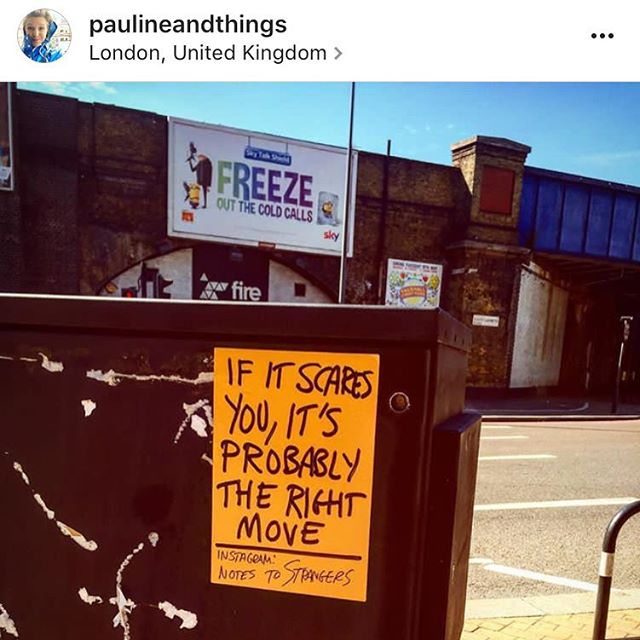 paulineandthings
London, United Kingdom
Sky Talk Shield
FREEZE
OUT THE COLD CALLS
sky
fire
IF IT SCARES
YOU, IT'S
PROBABLY
THE RIGHT
MOVE
INSTAGRAM:
NOTES TO STRANGERS